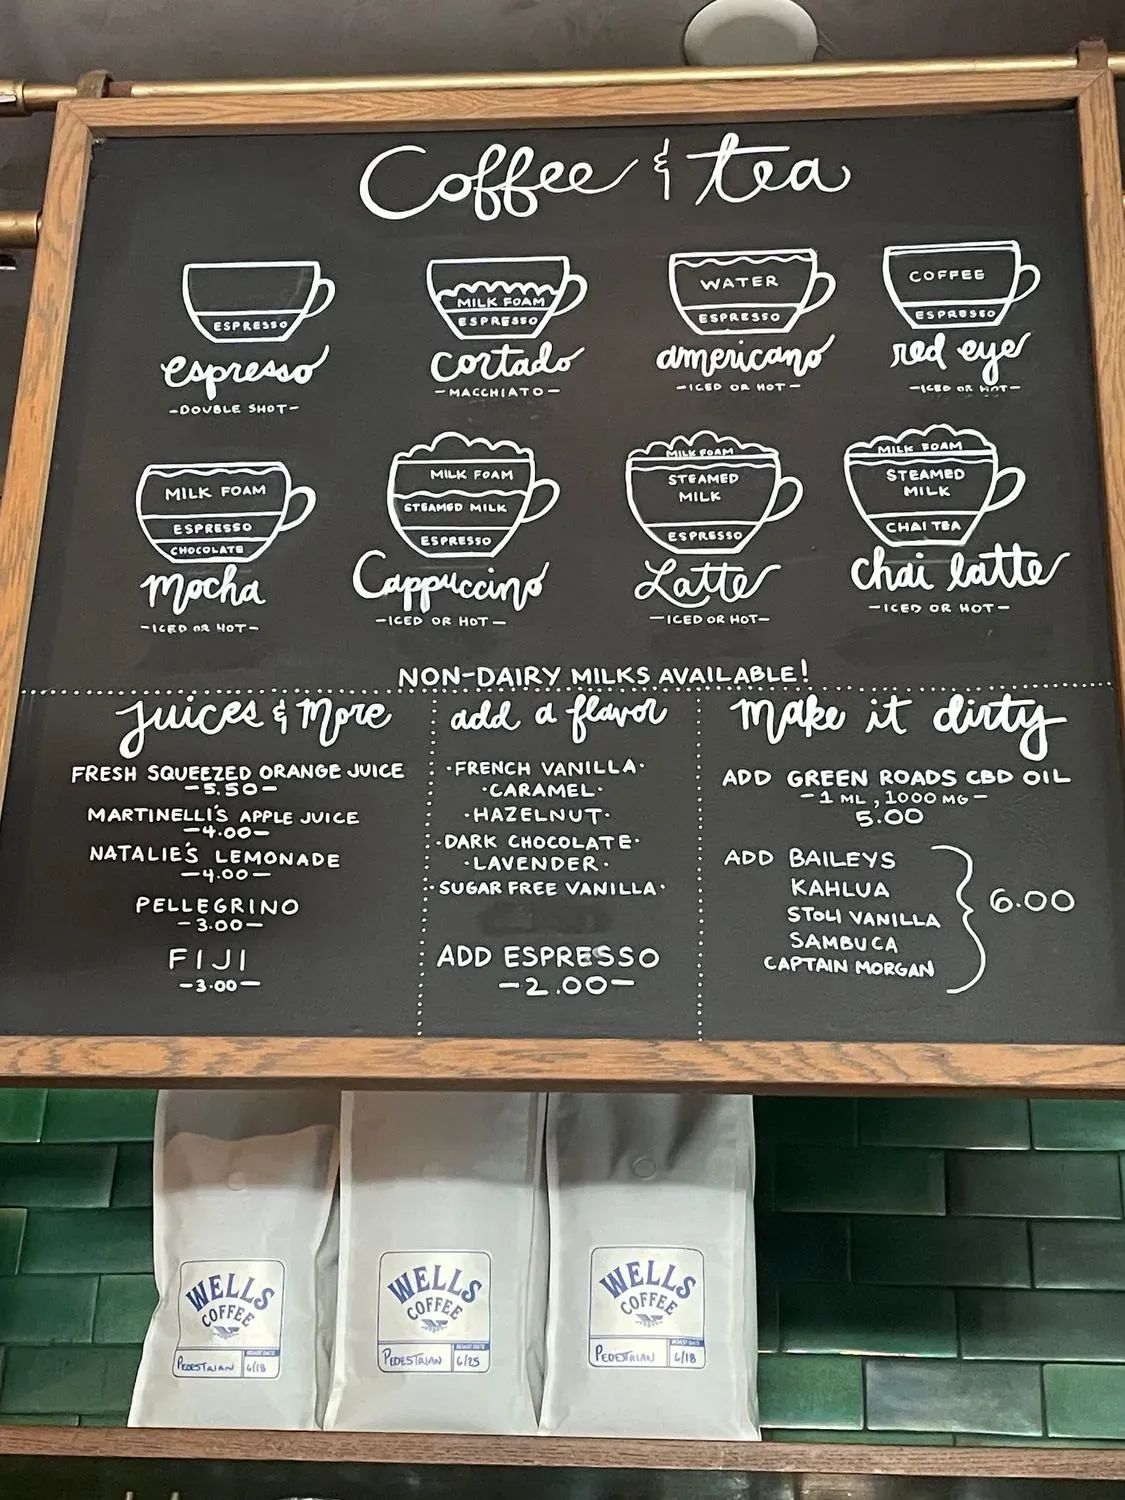 Coffee & tea
ESPRESSO
espresso
-DOUBLE SHOT-
MILK FOAM
ESPRESSO
cortado
-MACCHIATO-
WATER
ESPRESSO
americano
-ICED OR HOT-
COFFEE
ESPRESSO
red eye
-ICED OR HOT-
MILK FOAM
ESPRESSO
CHOCOLATE
Mocha
-ICED OR HOT-
MILK FOAM
STEAMED MILK
ESPRESSO
Cappuccino
-ICED OR HOT-
MILK FOAM
STEAMED
MILK
ESPRESSO
Latte
-ICED OR HOT-
MILK FOAM
STEAMED
MILK
CHAI TEA
chai latte
-ICED OR HOT-
NON-DAIRY MILKS AVAILABLE!
juices & More
FRESH SQUEEZED ORANGE JUICE
-5.50-
MARTINELLI'S APPLE JUICE
-4.00-
NATALIE'S LEMONADE
-4.00-
PELLEGRINO
-3.00-
FIJI
-3.00-
add a flavor
·FRENCH VANILLA·
·CARAMEL·
·HAZELNUT·
·DARK CHOCOLATE·
·LAVENDER·
·SUGAR FREE VANILLA·
ADD ESPRESSO
-2.00-
make it dirty
ADD GREEN ROADS CBD OIL
-1 ML, 1000 MG-
5.00
ADD BAILEYS
KAHLUA
STOLI VANILLA
SAMBUCA
CAPTAIN MORGAN
6.00
WELLS
COFFEE
ROAST DATE
PEDESTRIAN 6/18
WELLS
COFFEE
ROAST DATE
PEDESTRIAN 6/25
WELLS
COFFEE
ROAST DATE
PEDESTRIAN 6/18